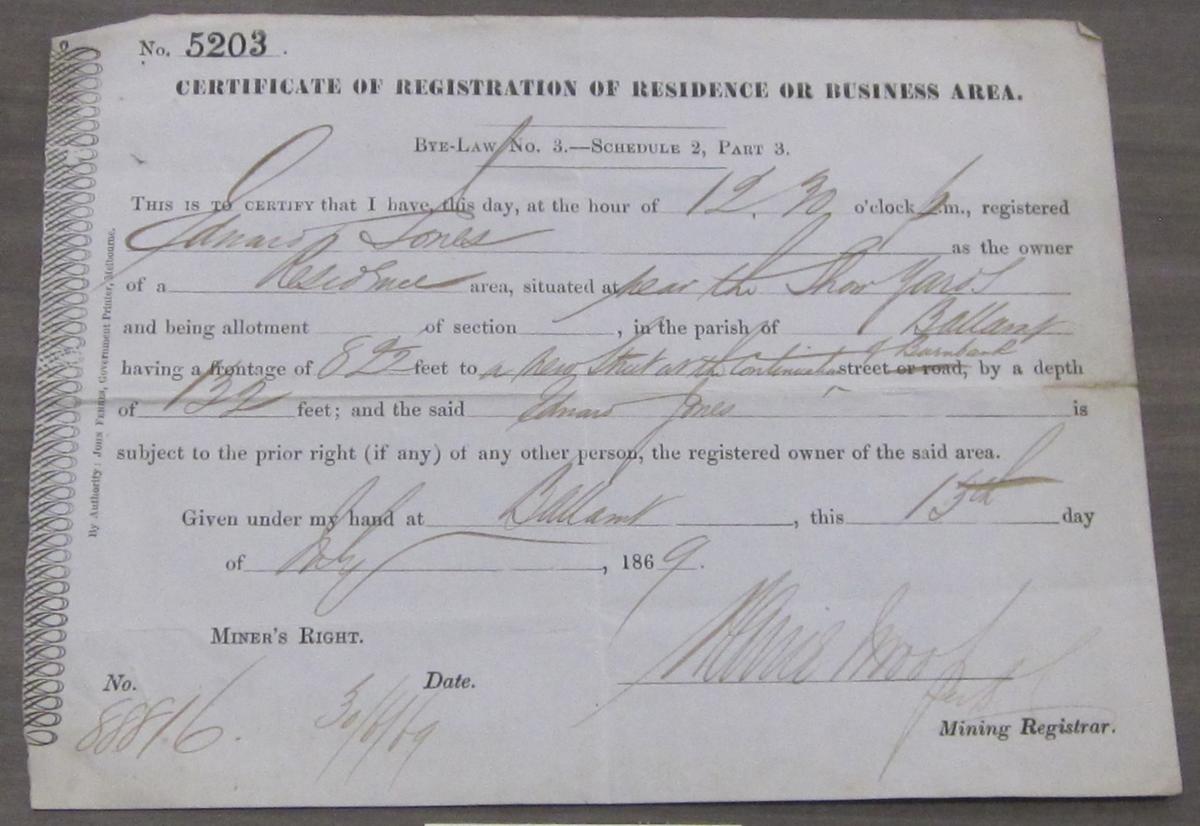 No. 5203.
CERTIFICATE OF REGISTRATION OF RESIDENCE OR BUSINESS AREA.
BYE-LAW No. 3.—SCHEDULE 2, PART 3.
THIS IS TO CERTIFY that I have, this day, at the hour of 12.30 o'clock p.m., registered
Edward Jones as the owner
of a Residence area, situated at near the Show Yards
and being allotment of section , in the parish of Ballarat
having a frontage of feet to a new Street at the of Burnbank street or road, by a depth
of 132 feet; and the said Edward Jones is
subject to the prior right (if any) of any other person, the registered owner of the said area.
Given under my hand at Ballarat , this 15th day
of July , 1869.
MINER'S RIGHT.
No. Date.
88816. 30/6/69
Mining Registrar.
By Authority: JOHN FERRES, Government Printer, Melbourne.